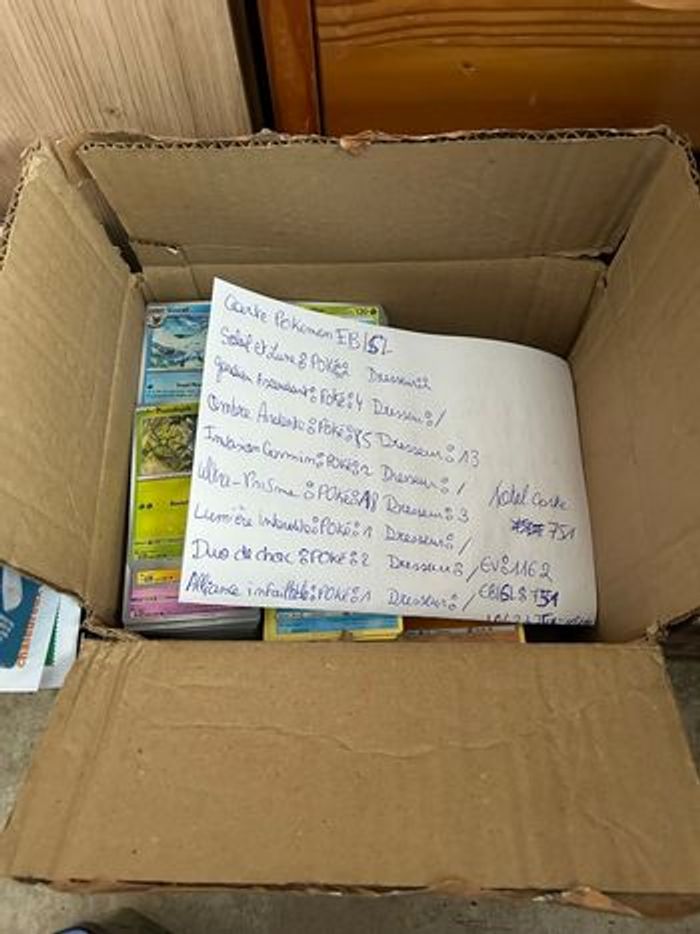 Carte Pokémon EB/SL
Soleil et Lune : POKé : 2 Dresseur : 2
gardien Ascendant : POKé : 4 Dresseur : /
Ombre Ardente : POKé : 85 Dresseur : 13
Invasion Carmin : POKé : 2 Dresseur : /
ultra-Prisme : POKé : 18 Dresseur : 3
Lumière Interdite : POKé : 1 Dresseur : /
Duo de choc : POKé : 2 Dresseur : /
Alliance infaillible : POKé : 1 Dresseur : /
Total Carte
751
EV : 1162
EB/SL : 751